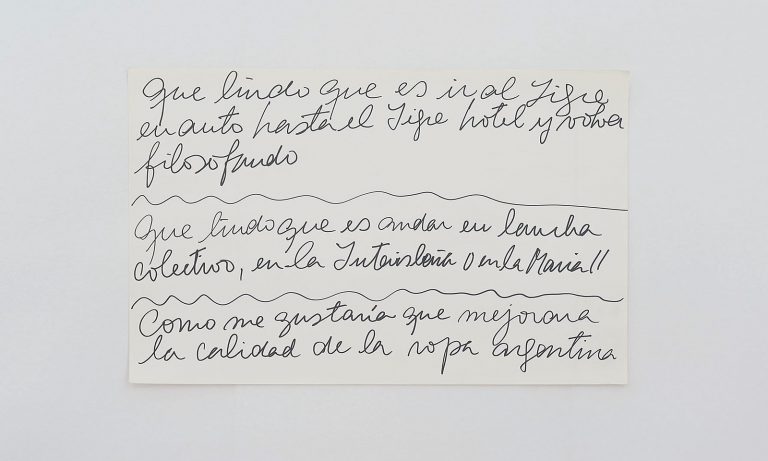 Que lindo que es ir al Tigre
en auto hasta el Tigre hotel y volver
filosofando
Que lindo que es andar en lancha
colectivo, en la Interisleña o en la Maria!!
Como me gustaría que mejorara
la calidad de la ropa argentina